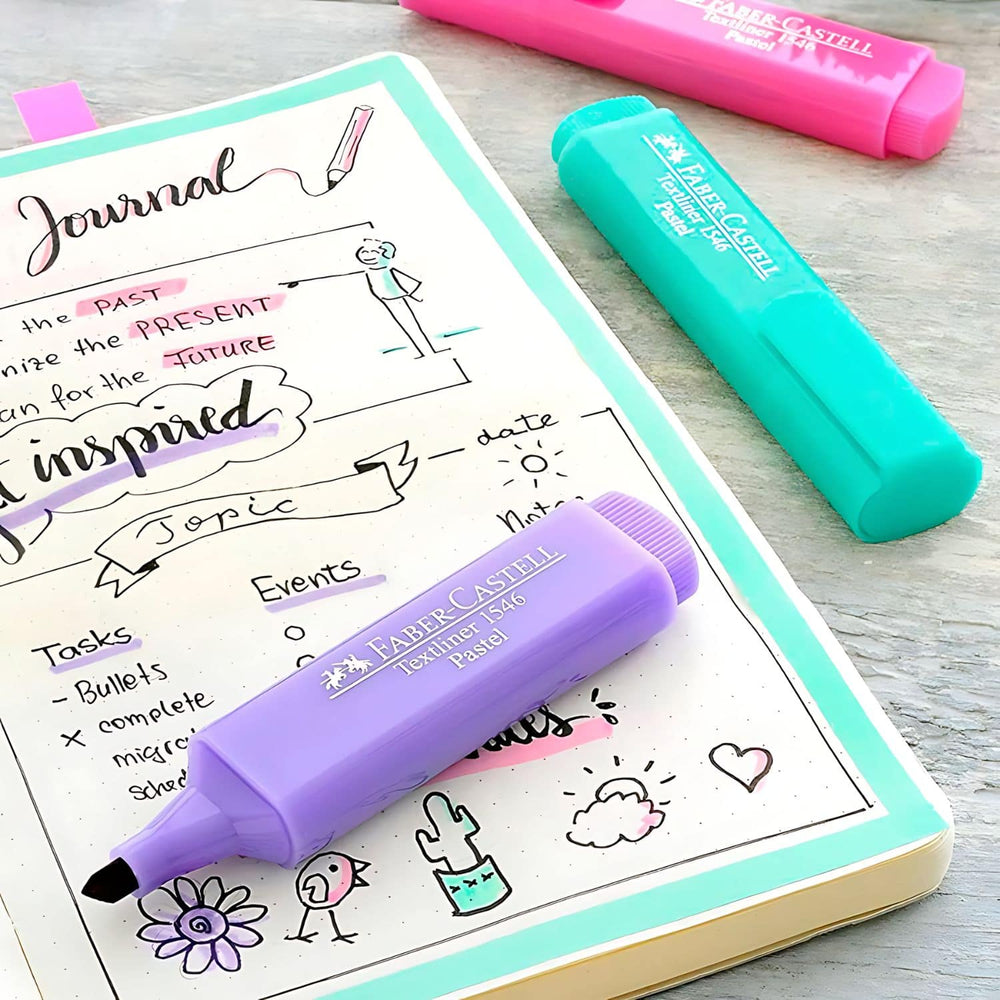 FABER-CASTELL
Textliner 1546
Pastel
FABER-CASTELL
Textliner 1546
Pastel
Journal
the PAST
the PRESENT
for the FUTURE
inspired
Topic
date
Events
Tasks
- Bullets
x complete
FABER-CASTELL
Textliner 1546
Pastel